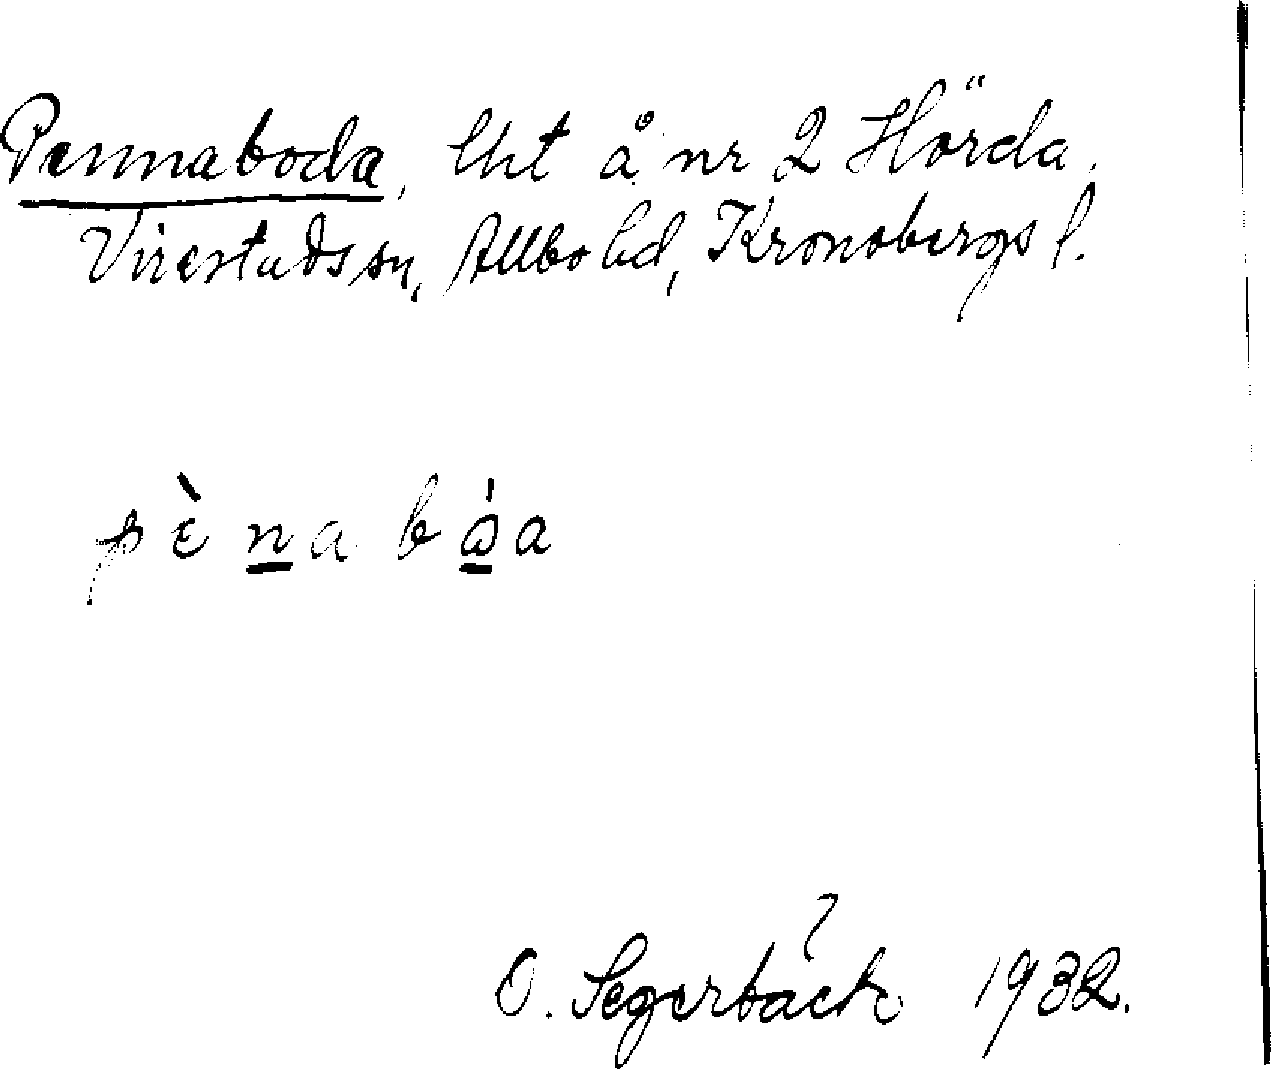 Pennaboda, lht å nr 2 Hörda,
Virestads sn, Allbo hd, Kronobergs l.
pὲnabǻa
O. Segerbäck 1932.